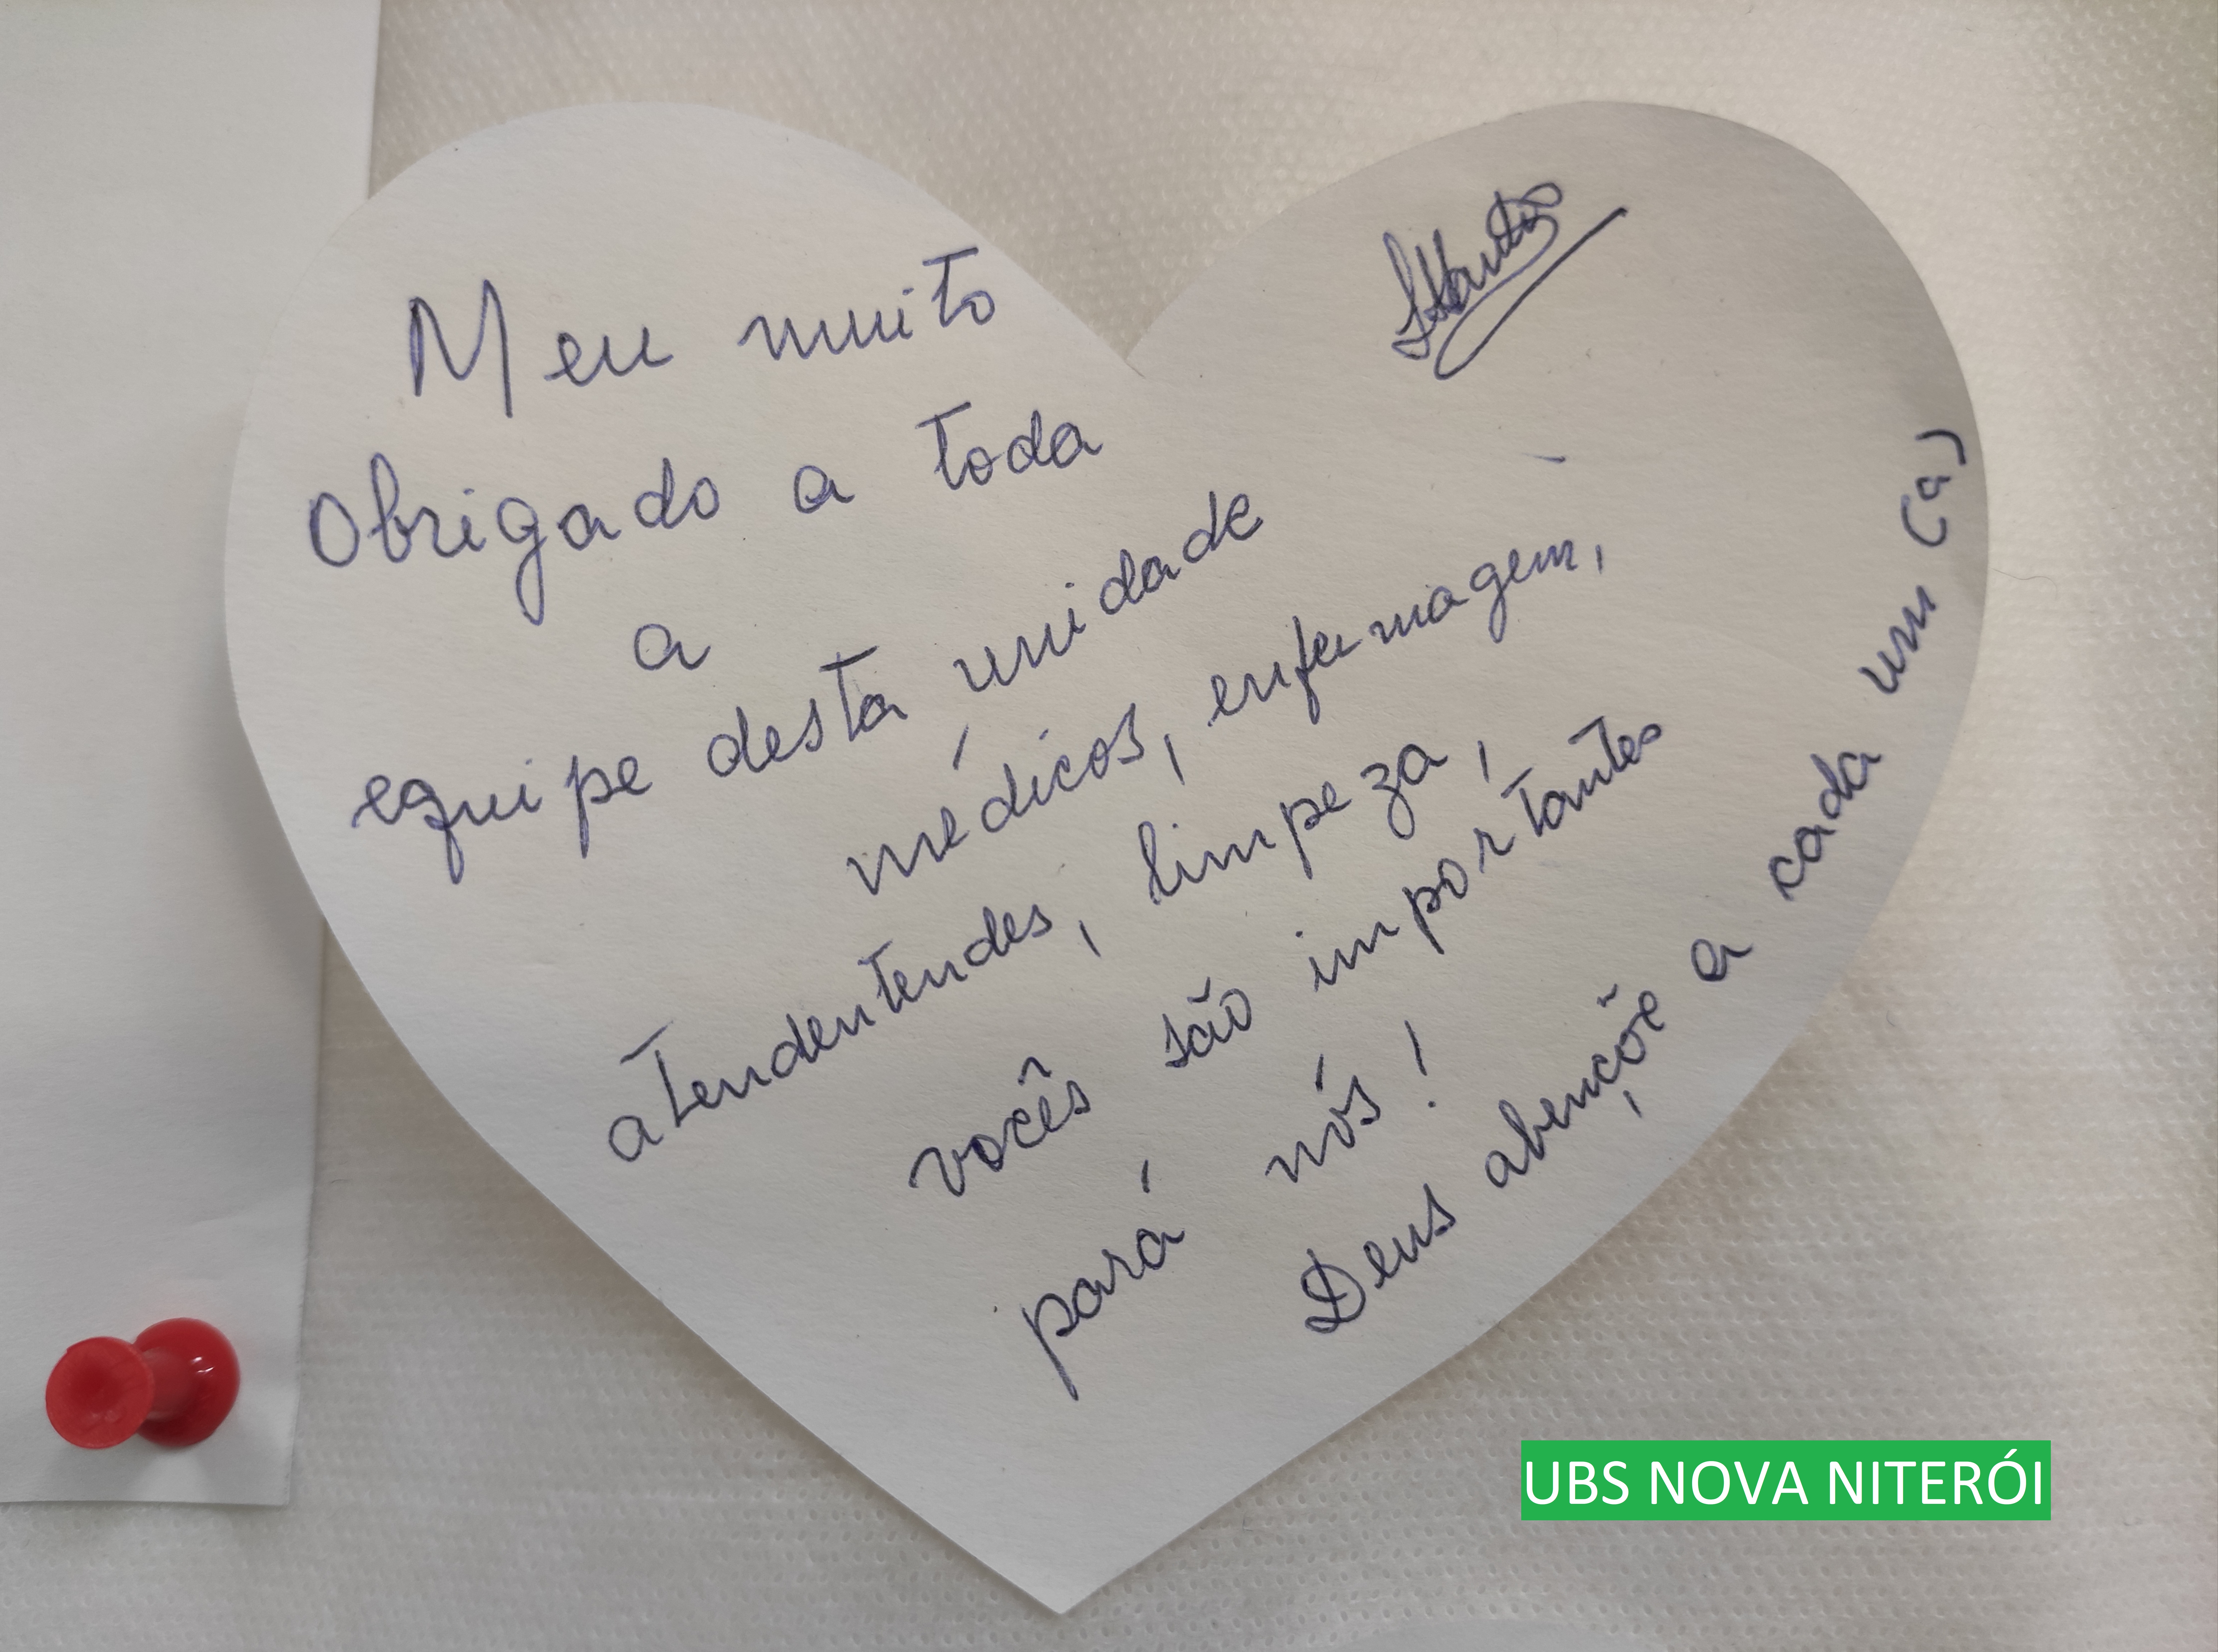 Meu muito
Obrigado a toda
a
equipe desta unidade
médicos, enfermagem,
atendentendes, limpeza,
vocês são importantes
pará nós!
Deus abençõe a cada um (a)
UBS NOVA NITERÓI